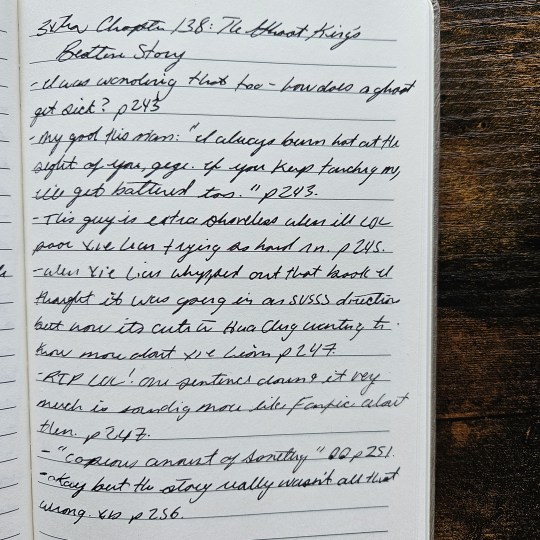 Extra Chapter 138: The Ghost King's
Bedtime Story
- I was wondering that too - how does a ghost
get sick? p243
- my god this man: "I always burn hot at the
sight of you, gege. If you keep touching me,
I'll get battered too." p243.
- This guy is extra shameless when ill LOL
poor Xie Lian trying so hard rn. p245.
- when Xie Lian whipped out that book I
thought it was going in a SVSSS direction
but now its cute Hua Cheng wanting to
know more about Xie Lian p247
- RIP LOL! One sentence down & it very
much is sounding more like Fanfic about
them. p247.
- "copious amount of something" p251.
- okay but the story really wasn't all that
wrong. p256.